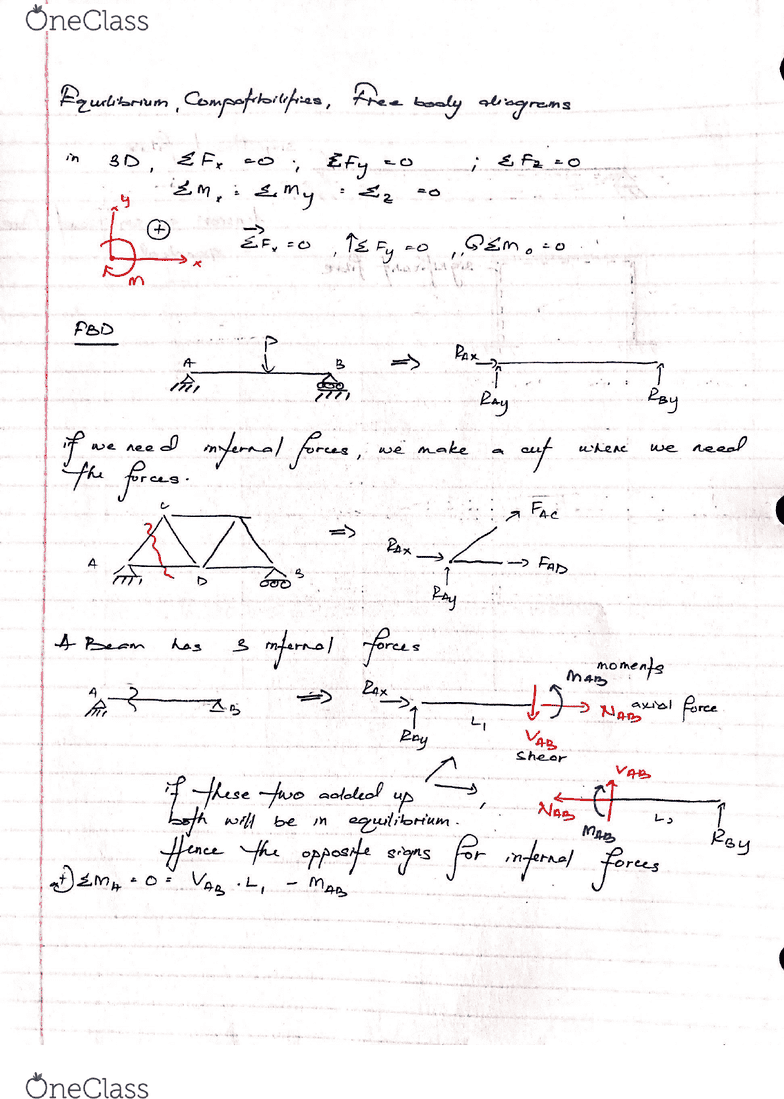 OneClass
Equilibrium, Compatibilities, Free body diagrams
in 3D, ΣFx = 0 ; ΣFy = 0 ; ΣFz = 0
ΣMx = ΣMy = Σz = 0
y
+
x
M
ΣFx = 0, ↑ΣFy = 0, ΣMo = 0
FBD
P
A B ⇒ RAx
RAy RBy
if we need internal forces, we make a cut where we need
the forces.
C ⇒ FAC
A D B RAx FAD
RAy
A Beam has 3 internal forces
moments
MAB
A B ⇒ RAx L1 NAB axial force
RAy VAB
shear
if these two added up,
both will be in equilibrium.
VAB
NAB MAB L2 RBy
Hence the opposite signs for internal forces
+ ΣMA = 0 = VAB . L1 - MAB
OneClass